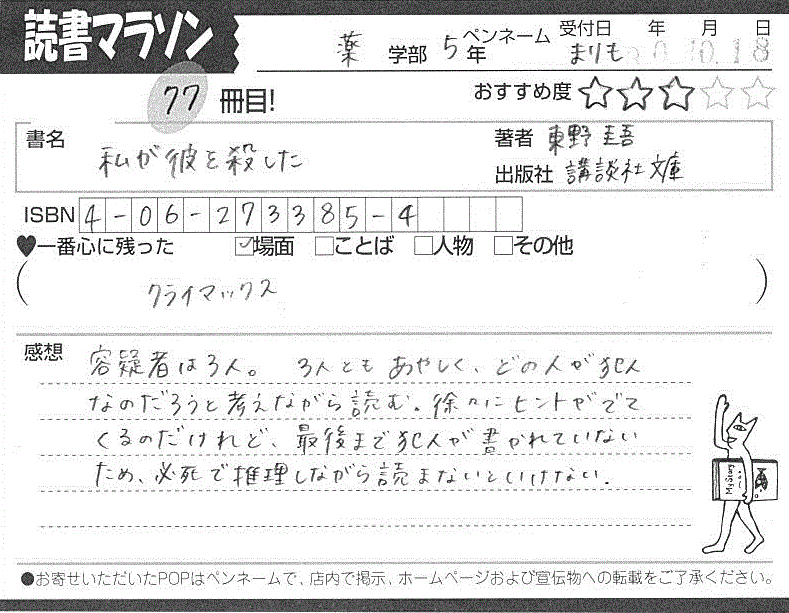 読書マラソン
薬 学部 5年 ペンネーム まりも 受付日 年 月 日
10.18
77 冊目!
おすすめ度 ☆☆☆☆☆
書名 私が彼を殺した
著者 東野圭吾
出版社 講談社文庫
ISBN 4-06-273385-4
♥一番心に残った ☑場面 □ことば □人物 □その他
( クライマックス )
感想
容疑者は3人。 3人ともあやしく、どの人が犯人
なのだろうと考えながら読む。徐々にヒントがでて
くるのだけれど、最後まで犯人が書かれていない
ため、必死で推理しながら読まないといけない。
My Story
●お寄せいただいたPOPはペンネームで、店内で掲示、ホームページおよび宣伝物への転載をご了承ください。